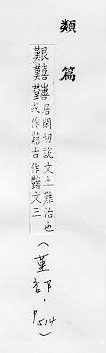 類篇
艱囏居閑切說文土難治也
或作古作文三
(堇部，P514)